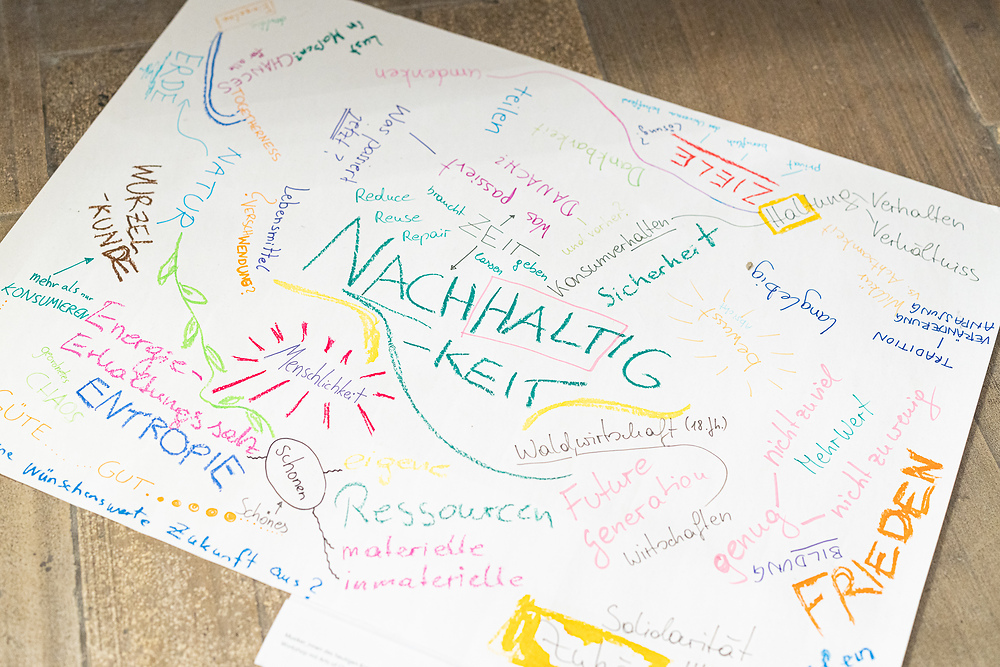 Lust
in Maßen?
CHANCES
TOGETHERNESS
ERDE
NATUR
WURZEL
-KUNDE
mehr als nur
KONSUMIEREN
umdenken
teilen
Dankbarkeit
Was passiert
jetzt?
Was passiert
DANACH?
Lösung?
ZIELE
privat
Haltung
Verhalten
Verhältniss
Reduce
Reuse
Repair
braucht
ZEIT
lassen
geben
Konsumverhalten
Sicherheit
Langlebig
bewusst
TRADITION
VERÄNDERUNG
ANPASSUNG
Lebensmittel
VERSCHWENDUNG?
NACHHALTIG
-KEIT
Menschlichkeit
Energie-
Erhaltungssatz
CHAOS
ENTROPIE
GÜTE
GUT
schonen
Schönes
eigene
Ressourcen
materielle
immaterielle
Wünschenswerte Zukunft aus?
Waldwirtschaft (18. Jh.)
Future
generation
wirtschaften
genug
nicht zuviel
nicht zu wenig
MehrWert
BILDUNG
FRIEDEN
Solidarität